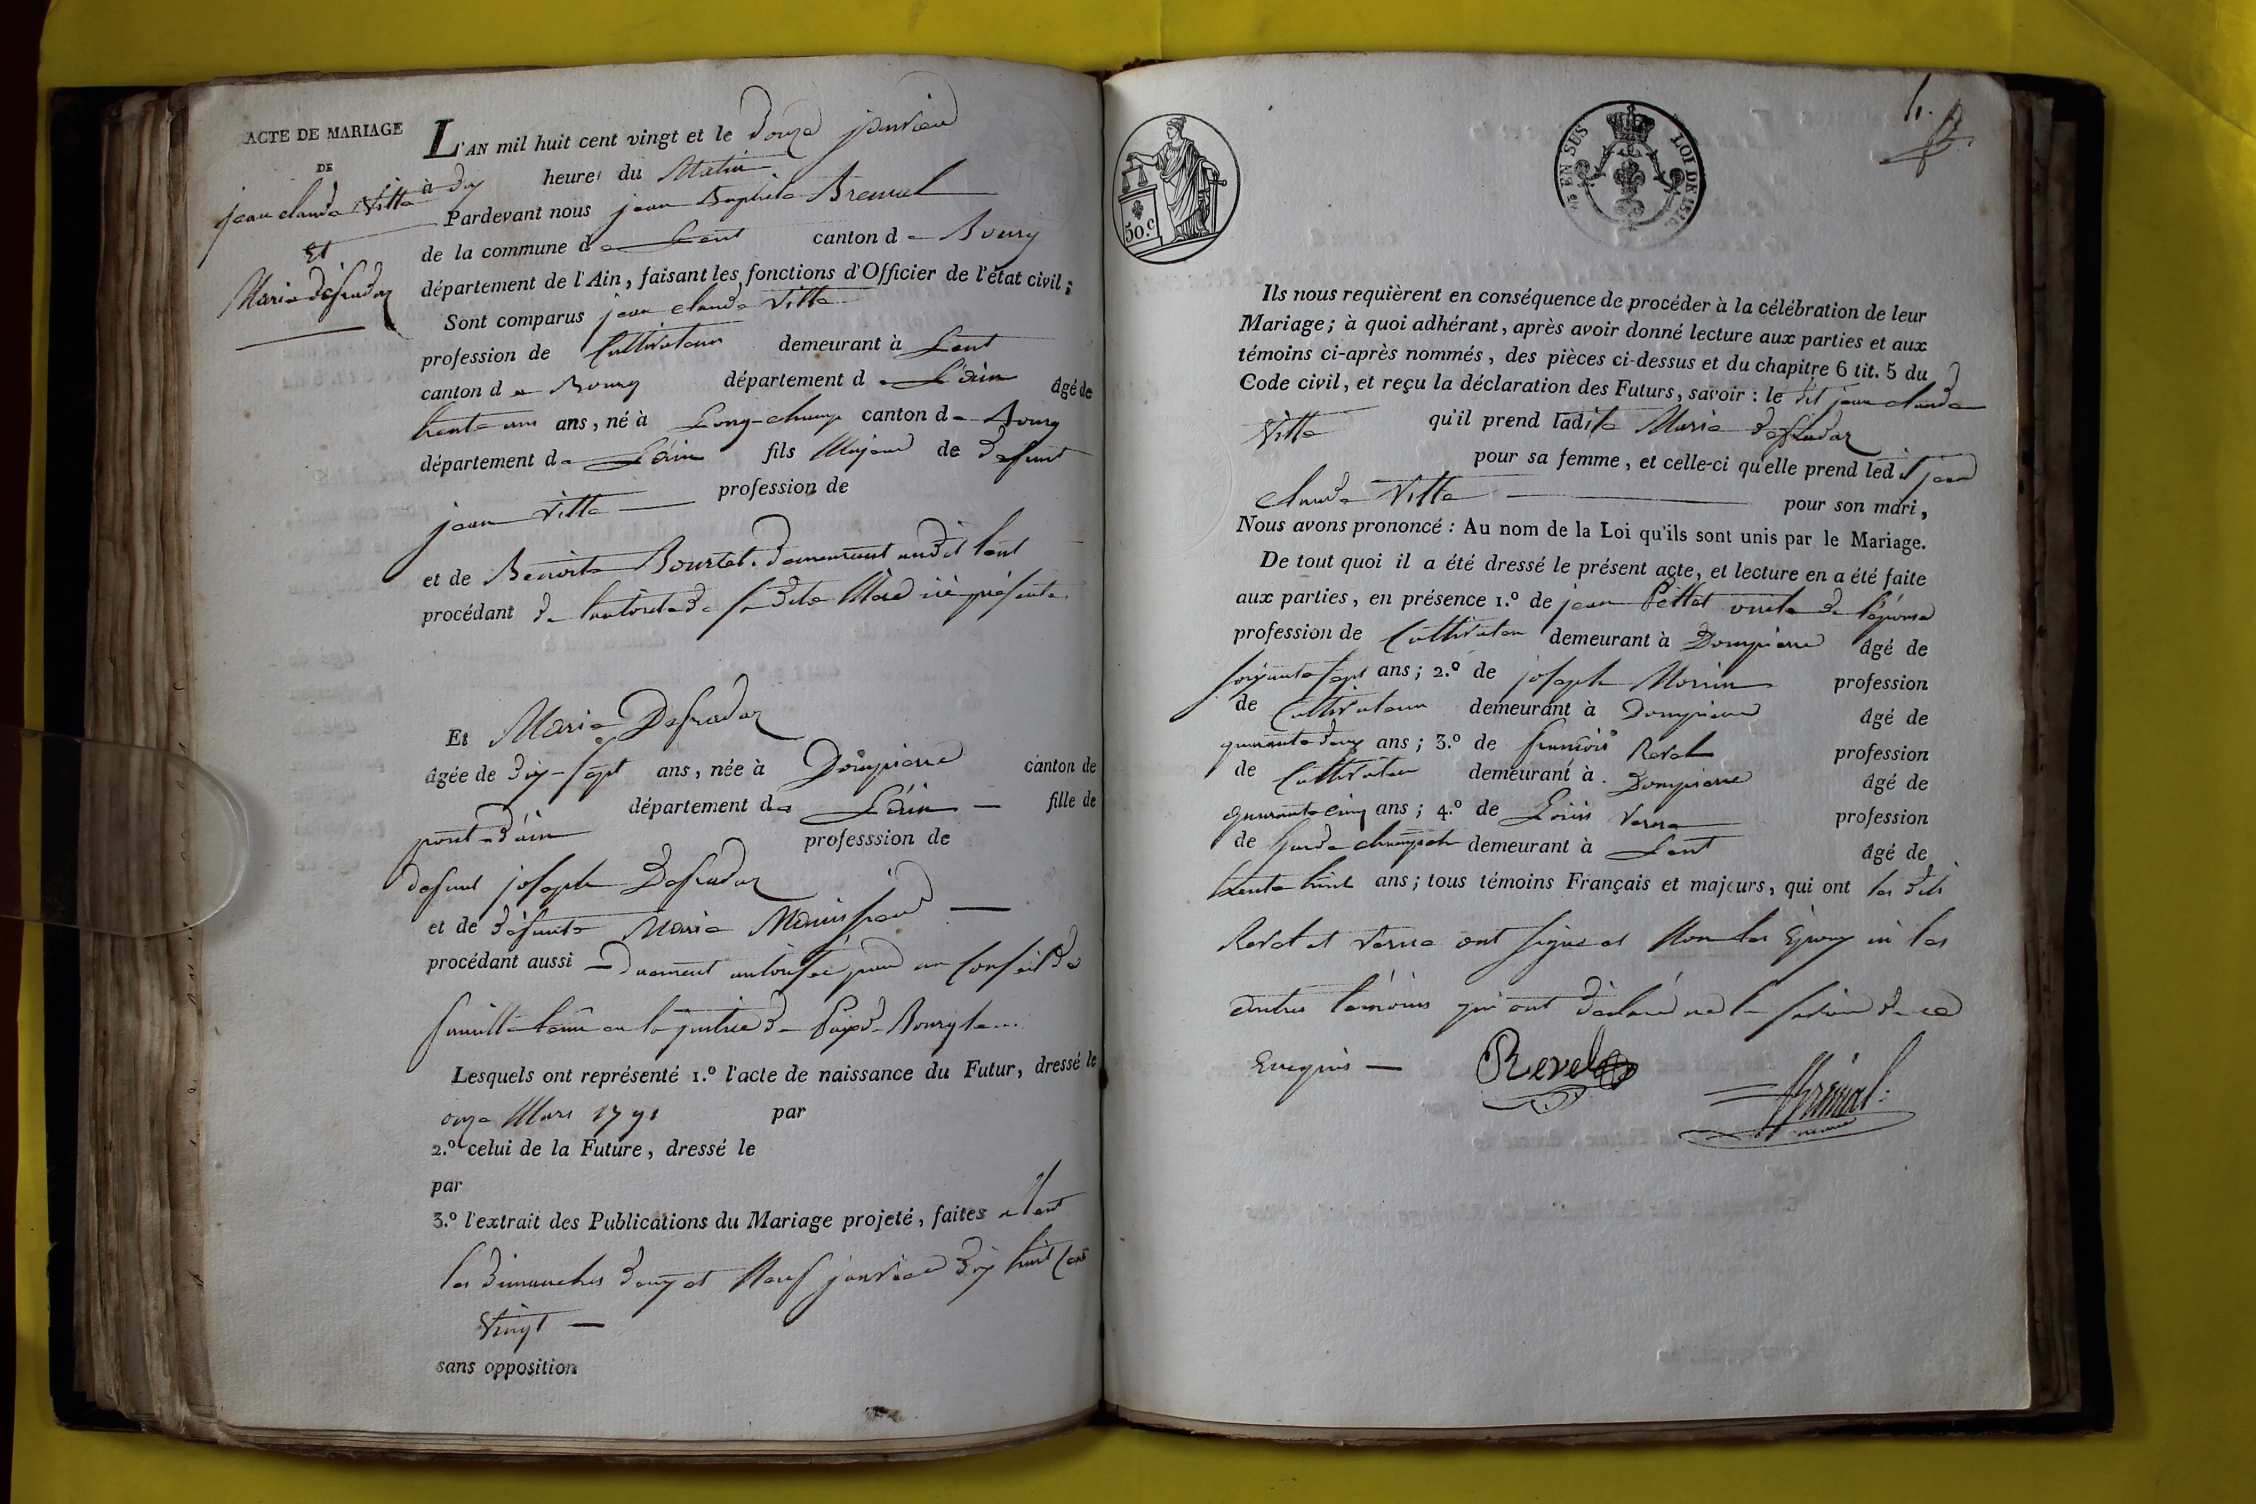 ACTE DE MARIAGE
DE
jean claude Vitte
Et
Marie defradaz
L'AN mil huit cent vingt et le douze janvier
à dix heures du Matin
Pardevant nous jean Baptiste
de la commune de Lent canton de Bourg
département de l'Ain, faisant les fonctions d'Officier de l'état civil;
Sont comparus jean claude Vitte
profession de Cultivateur demeurant à Lent
canton de Bourg département de L'ain âgé de
trente ans, né à Long-champ canton de Bourg
département de L'ain fils Majeur de defunt
jean Vitte profession de
et de Benoite demeurant audit Lent
procédant de l'autorité de sa dite Mère ici présente.
Et Marie Defradaz
âgée de dix-sept ans, née à Dompierre canton de
pont d'ain département de L'ain fille de
defunt joseph Defradaz professsion de
et de défunte Marie
procédant aussi duement autorisée par un Conseil de
famille tenu en la justice de Paix de Bourg le...
Lesquels ont représenté 1.º l'acte de naissance du Futur, dressé le
onze Mars 1791 par
2.º celui de la Future, dressé le
par
3.º l'extrait des Publications du Mariage projeté, faites a Lent
les dimanches deux et Neuf janvier dix huit Cent
Vingt
sans opposition
50.c
EN SUS LOI DE 1816
4.
Ils nous requièrent en conséquence de procéder à la célébration de leur
Mariage; à quoi adhérant, après avoir donné lecture aux parties et aux
témoins ci-après nommés, des pièces ci-dessus et du chapitre 6 tit. 5 du
Code civil, et reçu la déclaration des Futurs, savoir: le dit jean claude
Vitte qu'il prend ladite Marie defradaz
pour sa femme, et celle-ci qu'elle prend ledit jean
claude Vitte pour son mari,
Nous avons prononcé: Au nom de la Loi qu'ils sont unis par le Mariage.
De tout quoi il a été dressé le présent acte, et lecture en a été faite
aux parties, en présence 1.º de jean oncle de l'épouse
profession de Cultivateur demeurant à Dompierre âgé de
soixante sept ans; 2.º de joseph Morin profession
de Cultivateur demeurant à Dompierre âgé de
quarante deux ans; 3.º de françois Revel profession
de Cultivateur demeurant à Dompierre âgé de
quarante cinq ans; 4.º de Louis Verne profession
de Garde champetre demeurant à Lent âgé de
trente huit ans; tous témoins Français et majeurs, qui ont les dits
Revel et Verne ont signé et Non les Epoux ni les
autres témoins qui ont déclaré ne le savoir de ce
Enquis
Revel